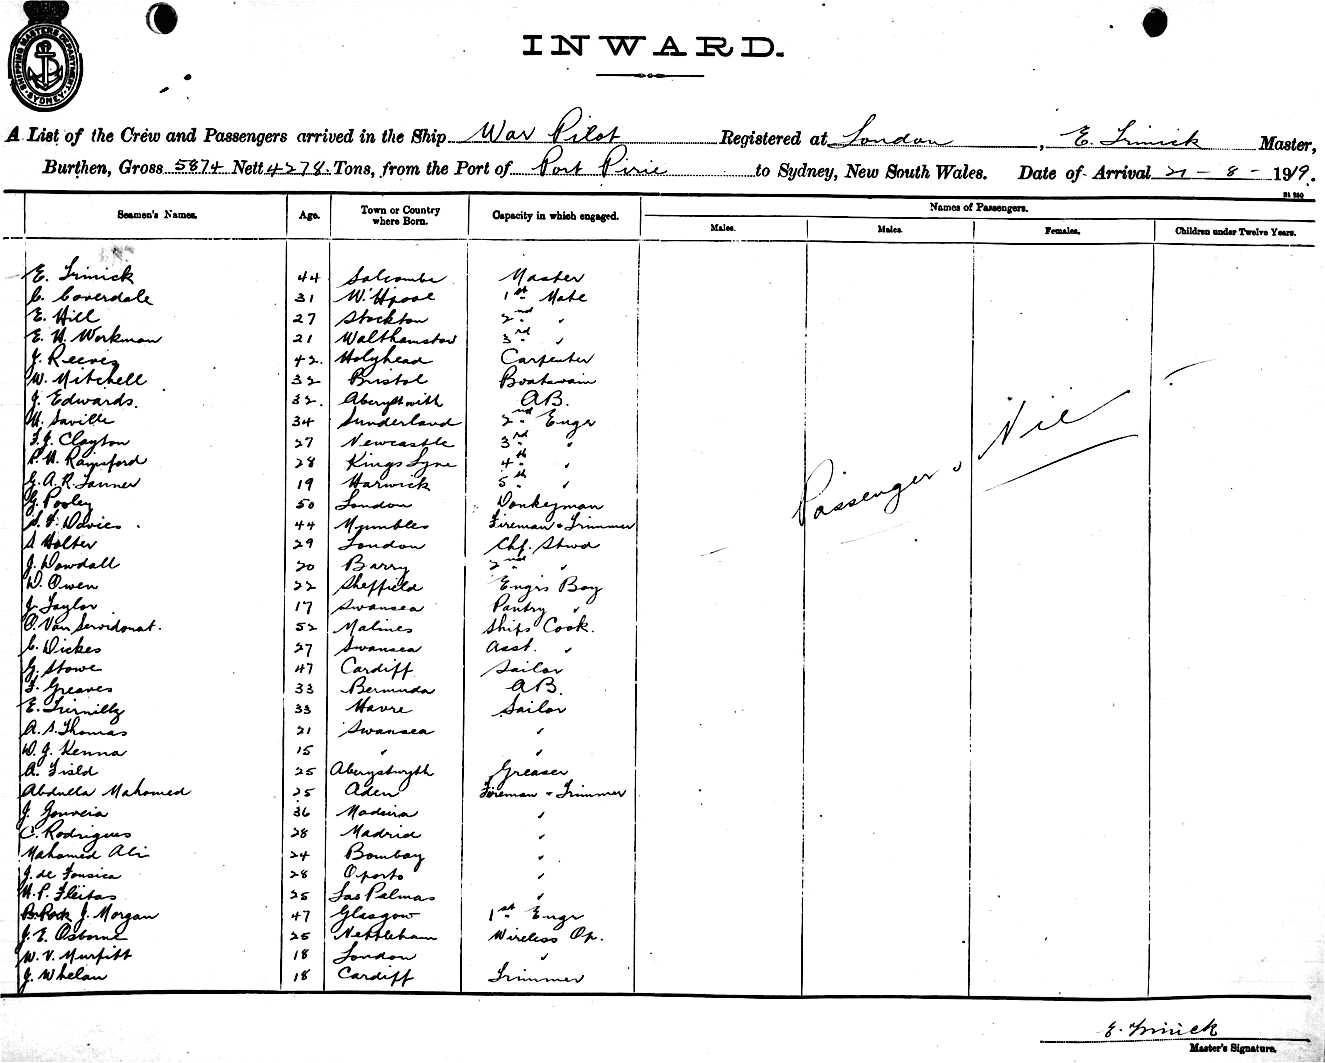 SHIPPING MASTERS DEPARTMENT SYDNEY
INWARD.
A List of the Crew and Passengers arrived in the Ship War Pilot Registered at London, E. Trinick Master,
Burthen, Gross 5874 Nett 4278 Tons, from the Port of Port Pirie to Sydney, New South Wales. Date of Arrival 21 - 8 - 1919.
Seamen's Names. Age. Town or Country where Born. Capacity in which engaged. Names of Passengers.
Males. Males. Females. Children under Twelve Years.
E. Trinick 44 Salcombe Master
C. Coverdale 31 W. H'pool 1st Mate
E. Hill 27 Stockton 2nd "
E. H. Workman 21 Walthamstow 3rd "
J. Reeves 42. Holyhead Carpenter
W. Mitchell 32 Bristol Boatswain
J. Edwards. 32. Aberystwith AB.
H. Saville 34 Sunderland 2nd Engr
F. J. Clayton 27 Newcastle 3rd "
28 Kings Lyne 4th "
G. A. R. Tanner 19 Harwick 5th "
G. Pooley 50 London Donkeyman
Davies 44 Mumbles Fireman & Trimmer
Holter 29 London Chf. Stwd
J. Dowdall 20 Barry 2nd "
D. Owen 22 Sheffield Engrs Boy
J. Taylor 17 Swansea Pantry "
O. Van 52 Malines Ships Cook.
C. Dickes 27 Swansea Asst. "
G. Stowe 47 Cardiff Sailor
F. Greaves 33 Bermuda AB.
E. 33 Havre Sailor
A. S. Thomas 21 Swansea "
W. J. Kenna 15 " "
A. Field 25 Greaser
Abdulla Mahomed 25 Aden Fireman & Trimmer
J. Gouveia 36 Madeira "
C. Rodrigues 28 Madrid "
Mahomed Ali 24 Bombay "
J. de Fonsica 28 Oporto "
M. P. Fleitas 25 Las Palmas "
J. Morgan 47 Glasgow 1st Engr
J. E. Osborne 25 Nettleham Wireless Op.
W. V. Murfitt 18 London "
J. Whelan 18 Cardiff Trimmer
Passengers Nil
E. Trinick
Master's Signature.